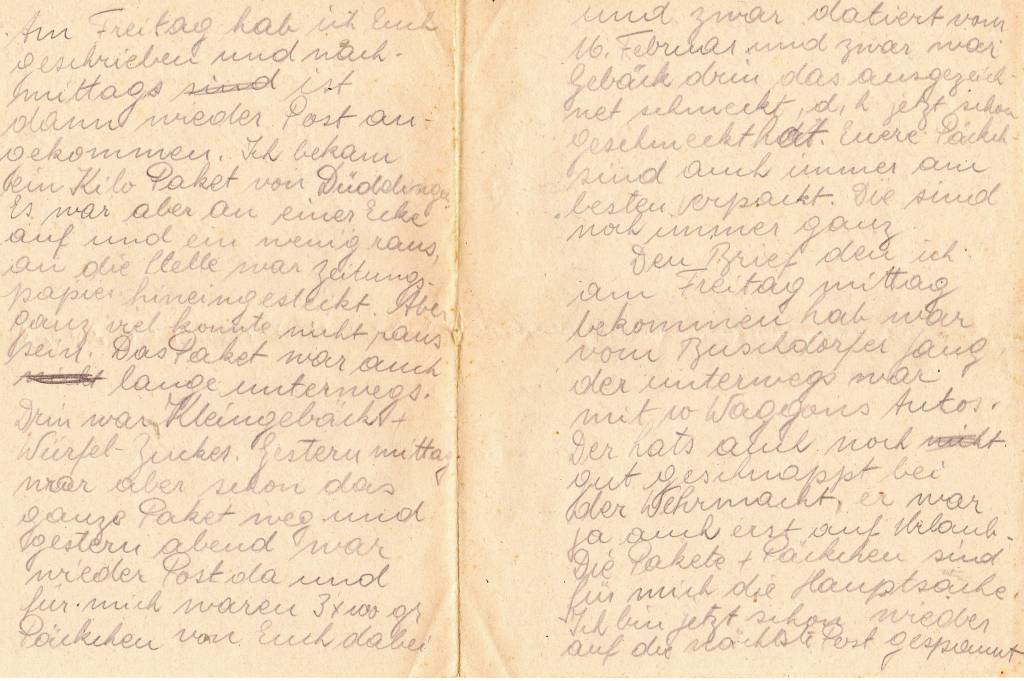 Am Freitag hab ich Euch
geschrieben und nach-
mittags sind ist
dann wieder Post an-
gekommen. Ich bekam
ein Kilo Paket von Düddinger
Es war aber an einer Ecke
auf und ein wenig raus,
an die Stelle war Zeitungs-
papier hineingesteckt. Aber
ganz viel konnte nicht raus
sein. Das Paket war auch
nicht lange unterwegs.
Drin war Kleingebäck +
Würfel-Zucker. Gestern mittag
war aber schon das
ganze Paket weg und
gestern abend war
wieder Post da und
für mich waren 3x100 gr
Päckchen von Euch dabei
und zwar datiert vom
16. Februar und zwar war
Gebäck drin das ausgezeich-
net schmeckt, d.h jetzt schon
geschmeckt hat. Euere Päckch
sind auch immer am
besten verpackt. Die sind
noch immer ganz
Den Brief den ich
am Freitag mittag
bekommen hab war
vom Buschdorfer
der unterwegs war
mit 10 Waggons Autos.
Der hats auch noch nicht
gut geschnappt bei
der Wehrmacht, er war
ja auch erst auf Urlaub.
Die Pakete + Päckchen sind
für mich die Hauptsache.
Ich bin jetzt schon wieder
auf die nächste Post gespannt